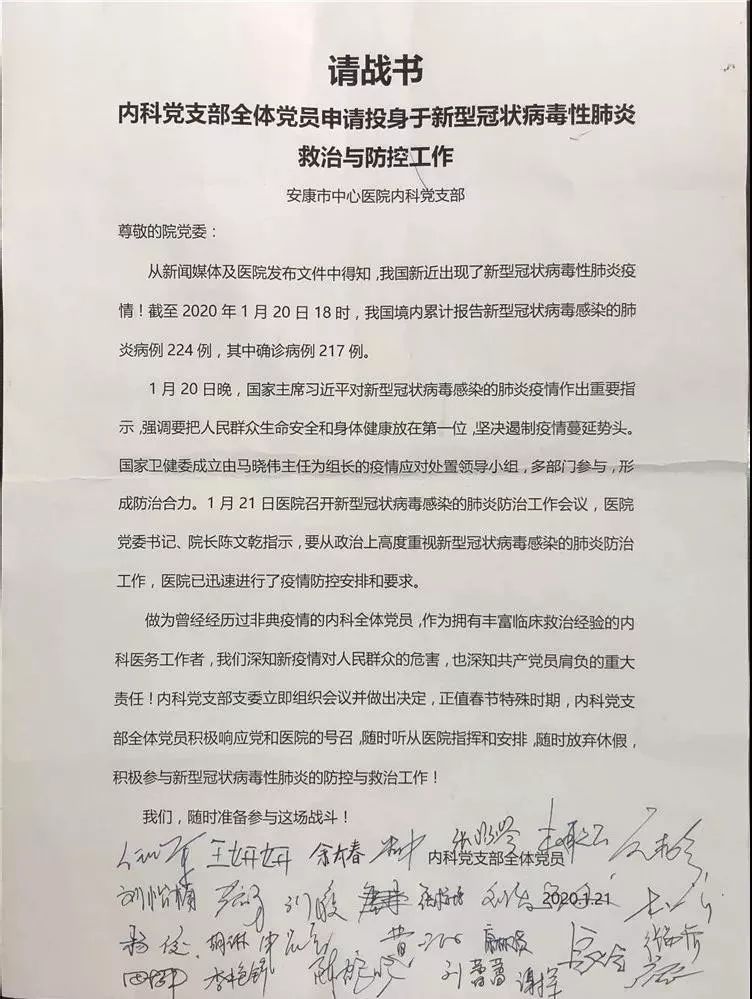 请战书
内科党支部全体党员申请投身于新型冠状病毒性肺炎
救治与防控工作
安康市中心医院内科党支部
尊敬的院党委：
从新闻媒体及医院发布文件中得知，我国新近出现了新型冠状病毒性肺炎疫
情！截至2020年1月20日18时，我国境内累计报告新型冠状病毒感染的肺
炎病例224例，其中确诊病例217例。
1月20日晚，国家主席习近平对新型冠状病毒感染的肺炎疫情作出重要指
示，强调要把人民群众生命安全和身体健康放在第一位，坚决遏制疫情蔓延势头。
国家卫健委成立由马晓伟主任为组长的疫情应对处置领导小组，多部门参与，形
成防治合力。1月21日医院召开新型冠状病毒感染的肺炎防治工作会议，医院
党委书记、院长陈文乾指示，要从政治上高度重视新型冠状病毒感染的肺炎防治
工作，医院已迅速进行了疫情防控安排和要求。
做为曾经经历过非典疫情的内科全体党员，作为拥有丰富临床救治经验的内
科医务工作者，我们深知新疫情对人民群众的危害，也深知共产党员肩负的重大
责任！内科党支部支委立即组织会议并做出决定，正值春节特殊时期，内科党支
部全体党员积极响应党和医院的号召，随时听从医院指挥和安排，随时放弃休假，
积极参与新型冠状病毒性肺炎的防控与救治工作！
我们，随时准备参与这场战斗！
王妍妍 余春 内科党支部全体党员
刘怡楠 刘毅 2020.1.21
胡琳
李艳锦 刘蕾蕾 谢挥